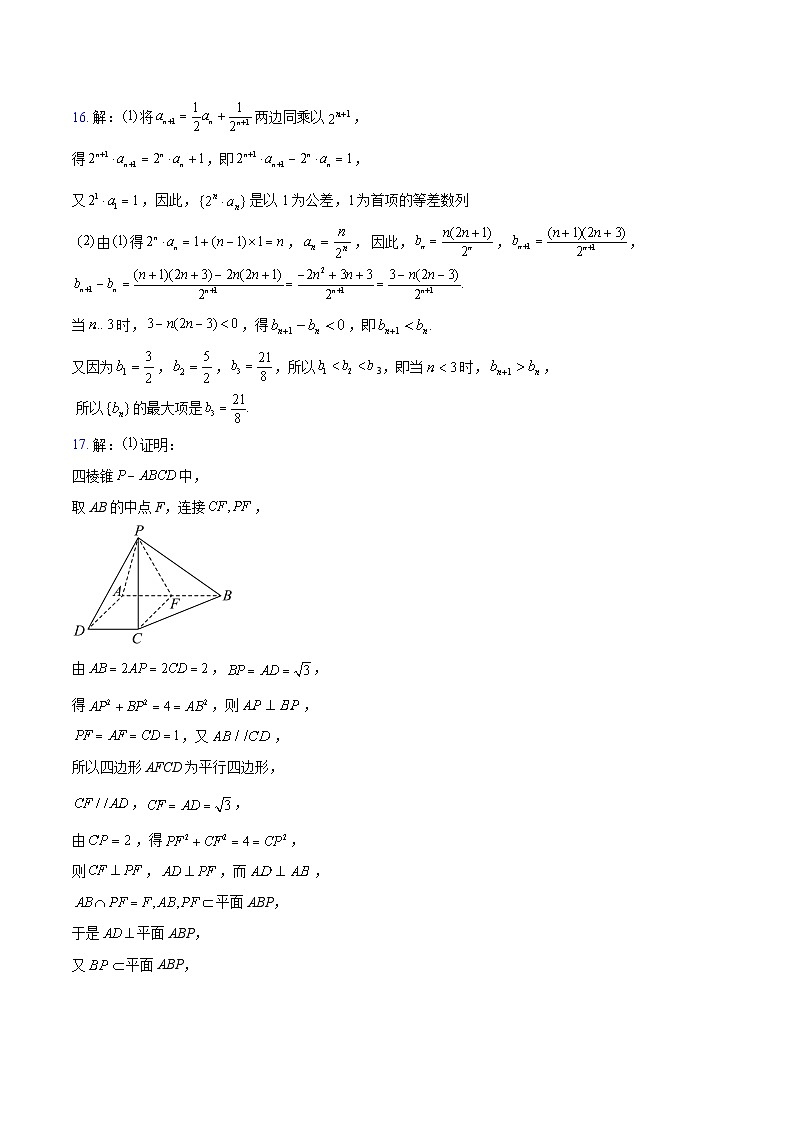 16. 解：(1)将 a_{n+1} = \frac{1}{2}a_n + \frac{1}{2^{n+1}} 两边同乘以 2^{n+1}，
得 2^{n+1}·a_{n+1} = 2^n·a_n + 1，即 2^{n+1}·a_{n+1} − 2^n·a_n = 1，
又 2^1·a_1 = 1，因此，{2^n·a_n} 是以 1 为公差，1 为首项的等差数列
(2)由(1)得 2^n·a_n = 1 + (n−1)×1 = n， a_n = \frac{n}{2^n}， 因此， b_n = \frac{n(2n+1)}{2^n}， b_{n+1} = \frac{(n+1)(2n+3)}{2^{n+1}}，
b_{n+1} − b_n = \frac{(n+1)(2n+3) − 2n(2n+1)}{2^{n+1}} = \frac{−2n^2+3n+3}{2^{n+1}} = \frac{3−n(2n−3)}{2^{n+1}}.
当 n.. 3 时，3 − n(2n−3) < 0，得 b_{n+1} − b_n < 0，即 b_{n+1} < b_n.
又因为 b_1 = \frac{3}{2}，b_2 = \frac{5}{2}，b_3 = \frac{21}{8}，所以 b_1 < b_2 < b_3，即当 n < 3 时，b_{n+1} > b_n，
所以 {b_n} 的最大项是 b_3 = \frac{21}{8}.
17. 解：(1)证明：
四棱锥 P − ABCD 中，
取 AB 的中点 F，连接 CF, PF，
P
A
F
B
D
C
由 AB = 2AP = 2CD = 2，BP = AD = √3，
得 AP^2 + BP^2 = 4 = AB^2，则 AP ⊥ BP，
PF = AF = CD = 1，又 AB//CD，
所以四边形 AFCD 为平行四边形，
CF//AD，CF = AD = √3，
由 CP = 2，得 PF^2 + CF^2 = 4 = CP^2，
则 CF ⊥ PF，AD ⊥ PF，而 AD ⊥ AB，
AB ∩ PF = F, AB, PF ⊂ 平面 ABP，
于是 AD ⊥ 平面 ABP，
又 BP ⊂ 平面 ABP，